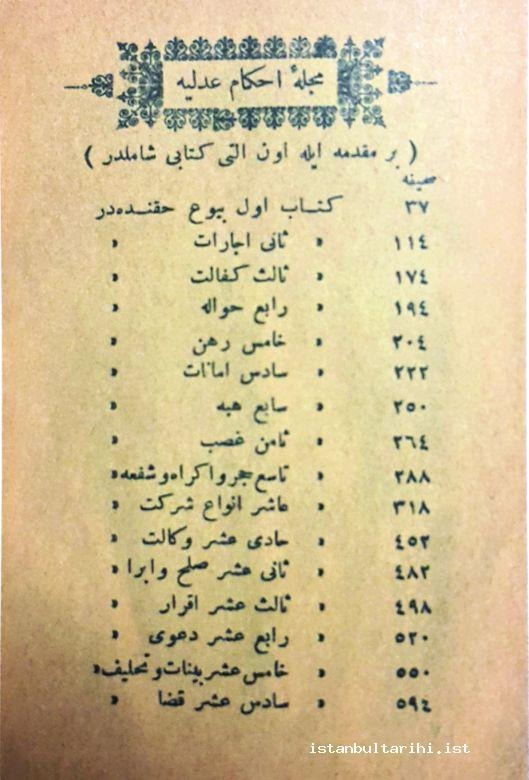 مجلهٔ احكام عدليه
( بر مقدمه ايله اون التى كتابى شاملدر )
صحيفه
٣٧ كتاب اول بيوع حقنده‌در
١١٤ » ثانى اجارات »
١٧٤ » ثالث كفالت »
١٩٤ » رابع حواله »
٢٠٤ » خامس رهن »
٢٢٢ » سادس امانات »
٢٥٠ » سابع هبه »
٢٦٤ » ثامن غصب »
٢٨٨ » تاسع حجر و اكراه و شفعه »
٣١٨ » عاشر انواع شركت »
٤٥٢ » حادى عشر وكالت »
٤٨٢ » ثانى عشر صلح و ابرا »
٤٩٨ » ثالث عشر اقرار »
٥٢٠ » رابع عشر دعوى »
٥٥٠ » خامس عشر بينات و تحليف »
٥٩٤ » سادس عشر قضا »
istanbultarihi.ist